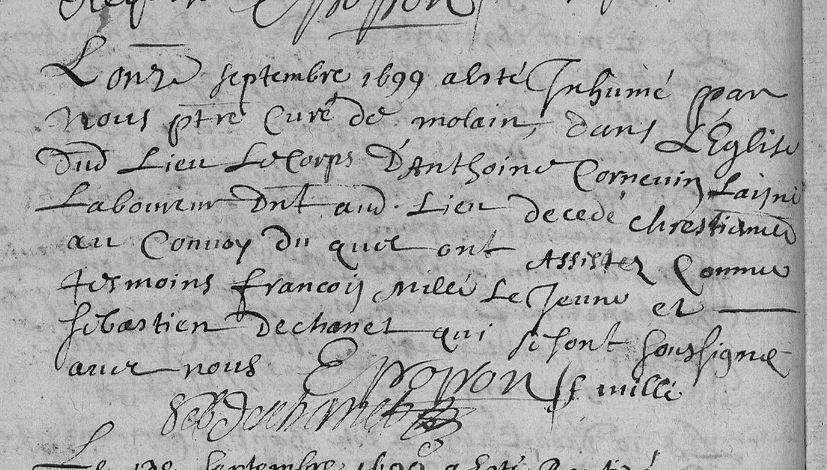 Lonze septembre 1699 a esté Inhumé par
nous ptre Curé de molain, dans L'Eglise
dud Lieu Le Corps D'Anthoine Cornevin Laisné
Laboureur dnt aud. Lieu decedé chrestiennet
au Convoy du quel ont Assistez Comme
tesmoins francois millé Le Jeune et
sebastien dechanet qui se sont soussigné
avec nous
f millé
Seb Dechanet
septembre 1699 a esté